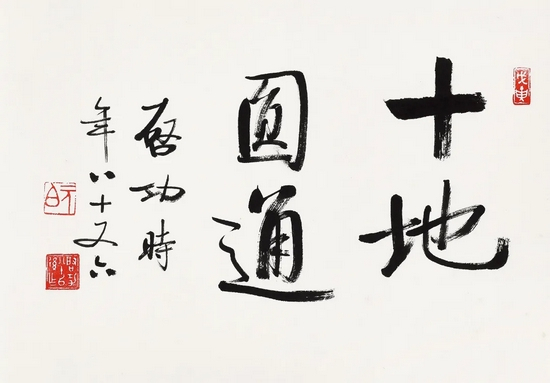 十地
圓通
啓功時
年八十又六
戊寅